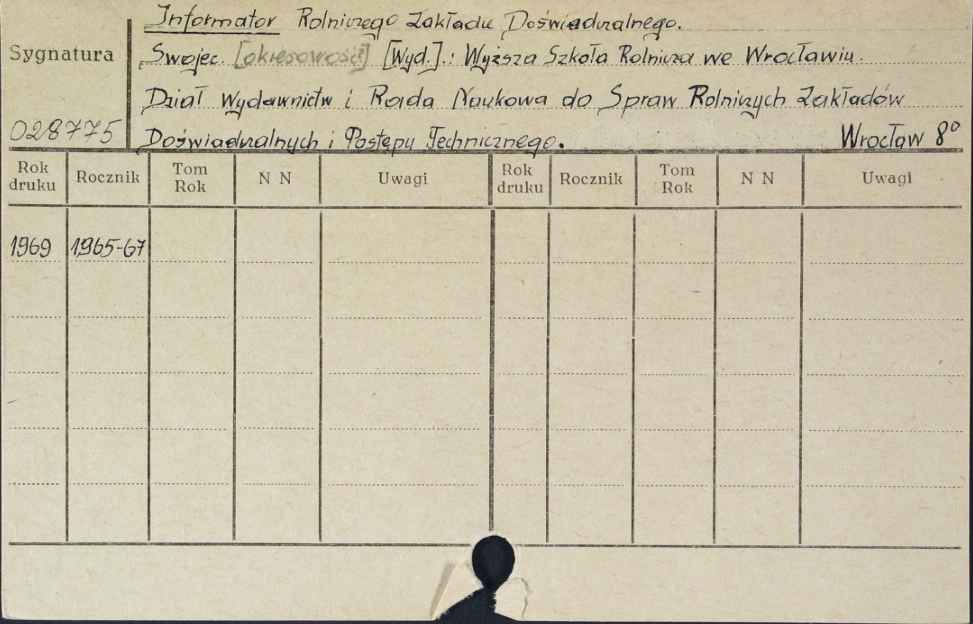 Informator Rolniczego Zakładu Doświadczalnego.
Sygnatura
Swojec. [okresowość] [Wyd.].: Wyższa Szkoła Rolnicza we Wrocławiu.
Dział Wydawnictw i Rada Naukowa do Spraw Rolniczych Zakładów
028775 Doświadczalnych i Postępu Technicznego. Wrocław 8°
Rok druku Rocznik Tom Rok N N Uwagi Rok druku Rocznik Tom Rok N N Uwagi
1969 1965-67